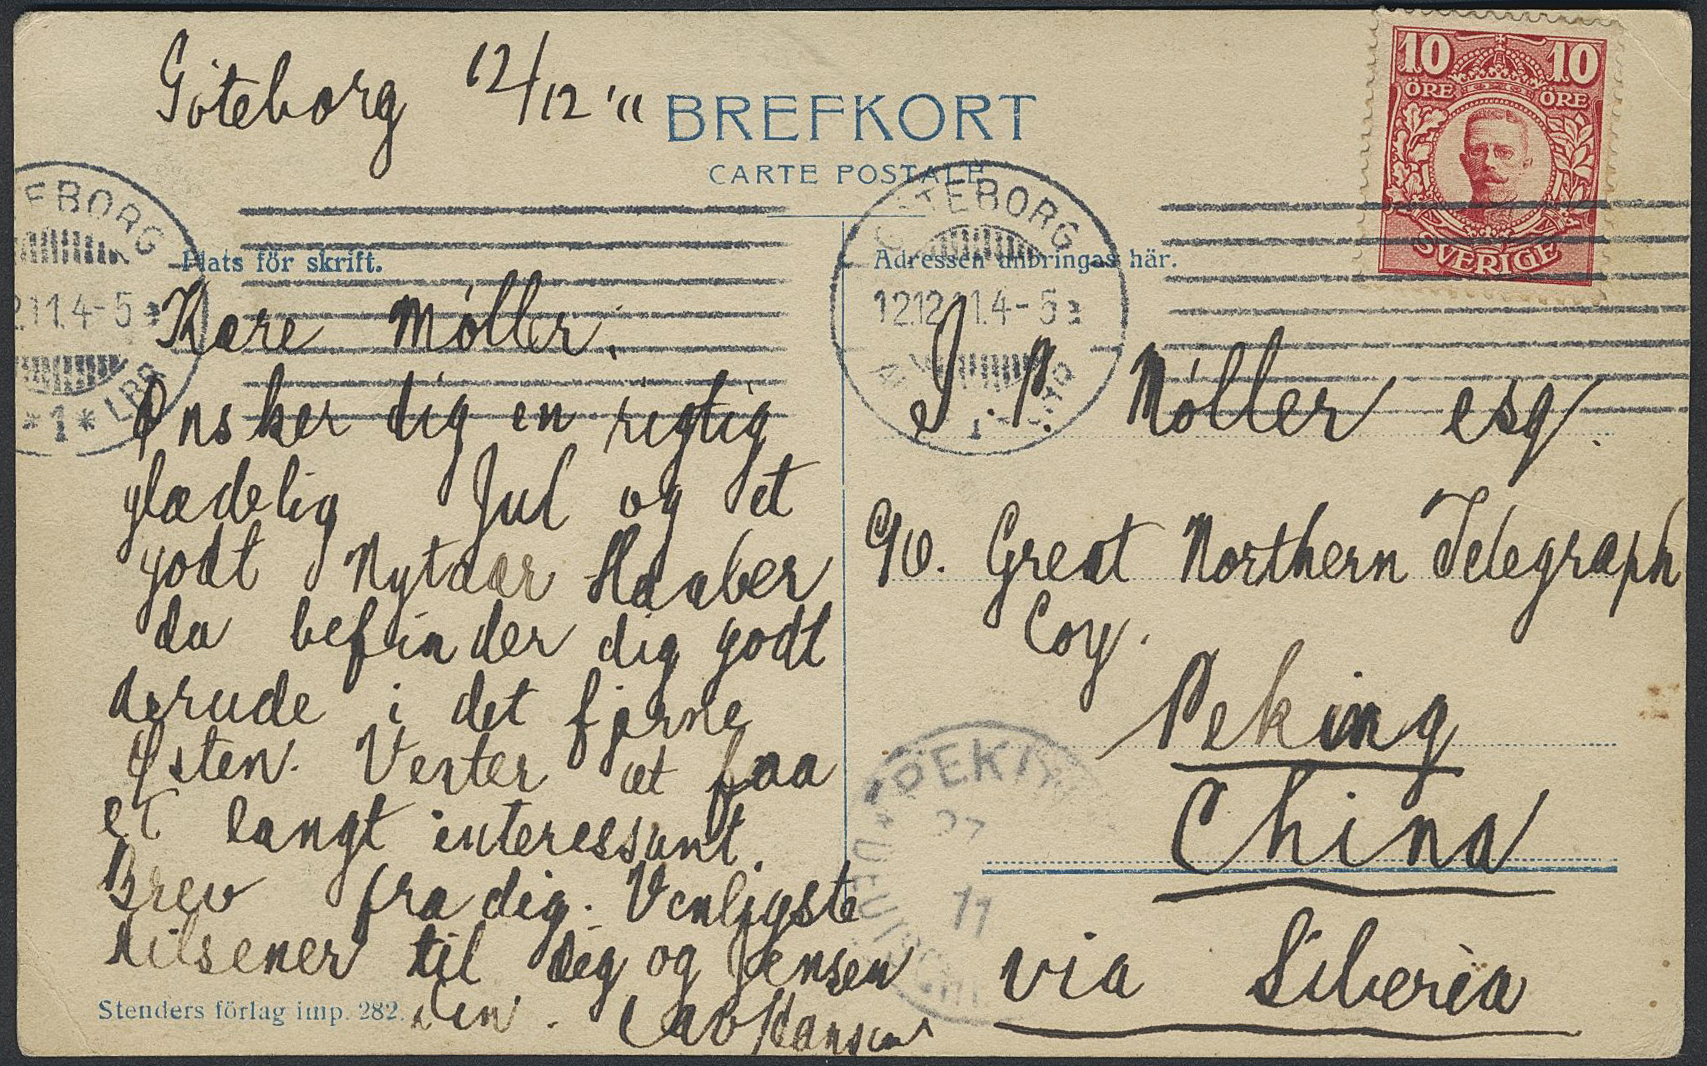 Göteborg 12/12 '11
BREFKORT
CARTE POSTALE
10 10
ÖRE ÖRE
SVERIGE
EBORG
2.11.4-5
*1* LBR
GÖTEBORG
12.12.11.4-5
1
Plats för skrift.
Kære Møller.
Ønsker dig en rigtig
glædelig Jul og et
godt Nytaar Haaber
du befinder dig godt
derude i det fjerne
Østen. Venter at faa
et langt interessant
Brev fra dig. Venligste
Hilsener til dig og Jensen
Stenders förlag imp. 282.
din.
Adressen anbringas här.
J. P. Møller esq.
c/o. Great Northern Telegraph
Coy.
Peking
China
via Siberia
PEKING
27
11
DEUTSCHE